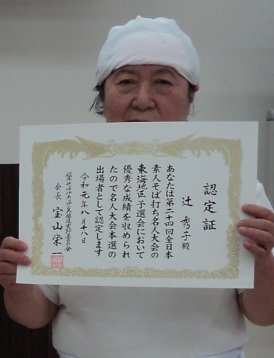 認定証
辻 秀子殿
あなたは第二十四回全日本
素人そば打ち名人大会の
東海地区予選会において
優秀な成績を収められ
たので名人大会本選の
出場者として認定します
令和元年八月十八日
会長 宝山栄